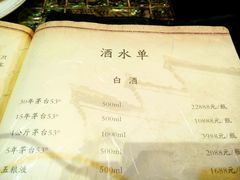 酒水单
白酒
30年茅台53° 500ml 22888元/瓶
15年茅台53° 500ml 10888元/瓶
4公斤茅台53° 1000ml 3988元/瓶
5年茅台53° 500ml 2088元/瓶
五粮液 500ml 1688元/